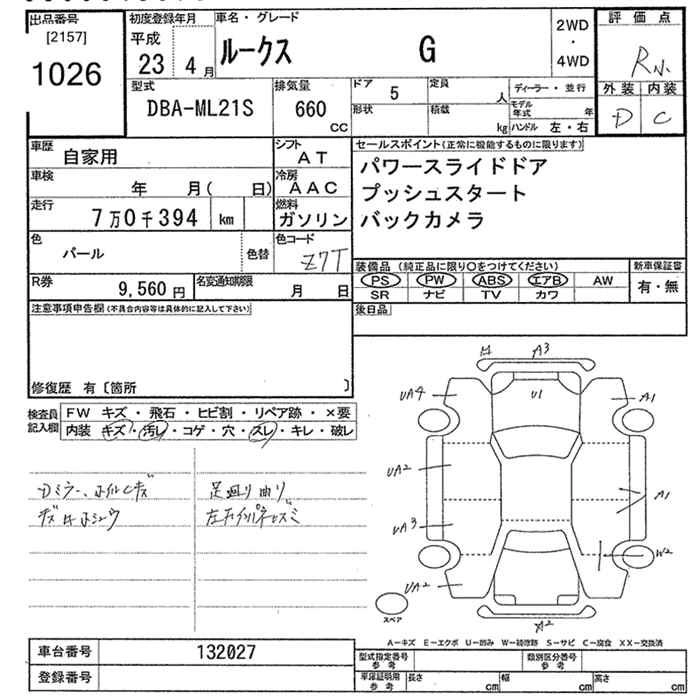 出品番号
[2157]
1026
初度登録年月
平成
23 4月
車名・グレード
ルークス G
2WD
・
4WD
評価点
R
外装 内装
D C
型式
DBA-ML21S
排気量
660
CC
ドア 5
形状
定員 人
積載 kg
ディーラー・並行
モデル年式 年
ハンドル 左・右
車歴 自家用
シフト AT
車検 年 月( 日)
冷房 AAC
走行 7万0千394 km
燃料 ガソリン
色 パール 色替
色コード Z7T
R券 9,560円
名変通知期限 月 日
セールスポイント(正常に機能するものに限ります)
パワースライドドア
プッシュスタート
バックカメラ
装備品 (純正品に限り○をつけてください)
PS PW ABS エアB AW
SR ナビ TV カワ
新車保証書
有・無
後日品
注意事項申告欄(不具合内容等は具体的に記入して下さい)
修復歴 有〔箇所 〕
検査員記入欄
FW キズ・飛石・ヒビ割・リペア跡・×要
内装 キズ・汚レ・コゲ・穴・スレ・キレ・破レ
足廻り曲り
A3
UA4
U1
A1
UA2
A1
UA3
W2
UA2
A2
スペア
A－キズ E－エクボ U－凹み W－補修跡 S－サビ C－腐食 XX－交換済
車台番号 132027
登録番号
型式指定番号 参考
類別区分番号 参考
車庫証明用 参考
長さ cm
幅 cm
高さ cm